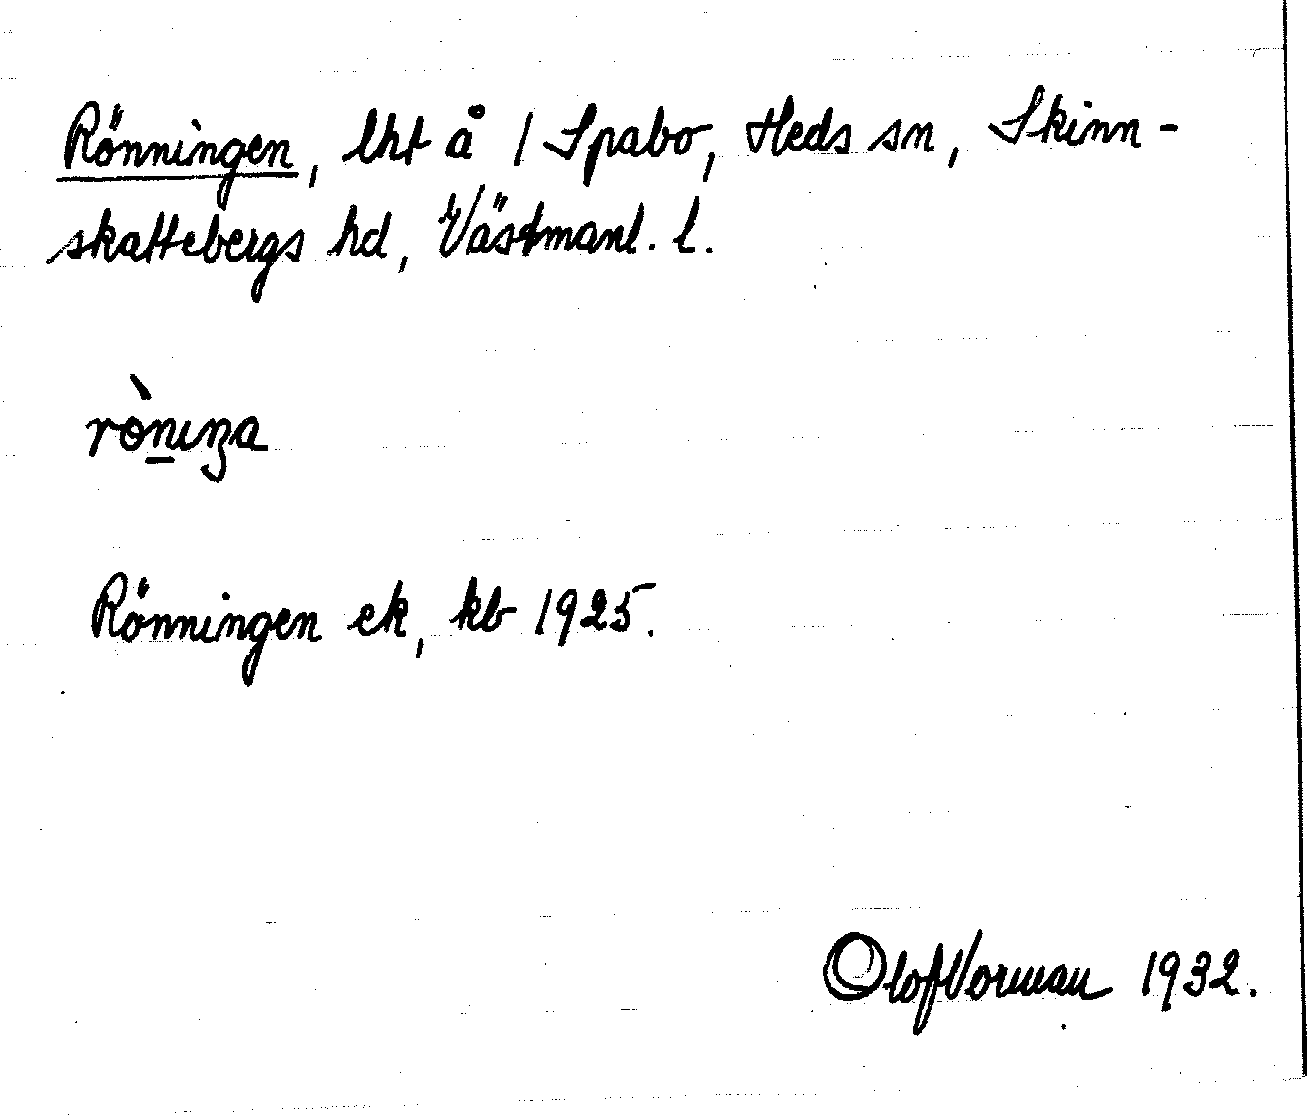 Rönningen, lht å 1 Spabo, Heds sn, Skinn-
skattebergs hd, Västmanl. l.
Rönningen ek, kb 1925.
Olof Vorman 1932.